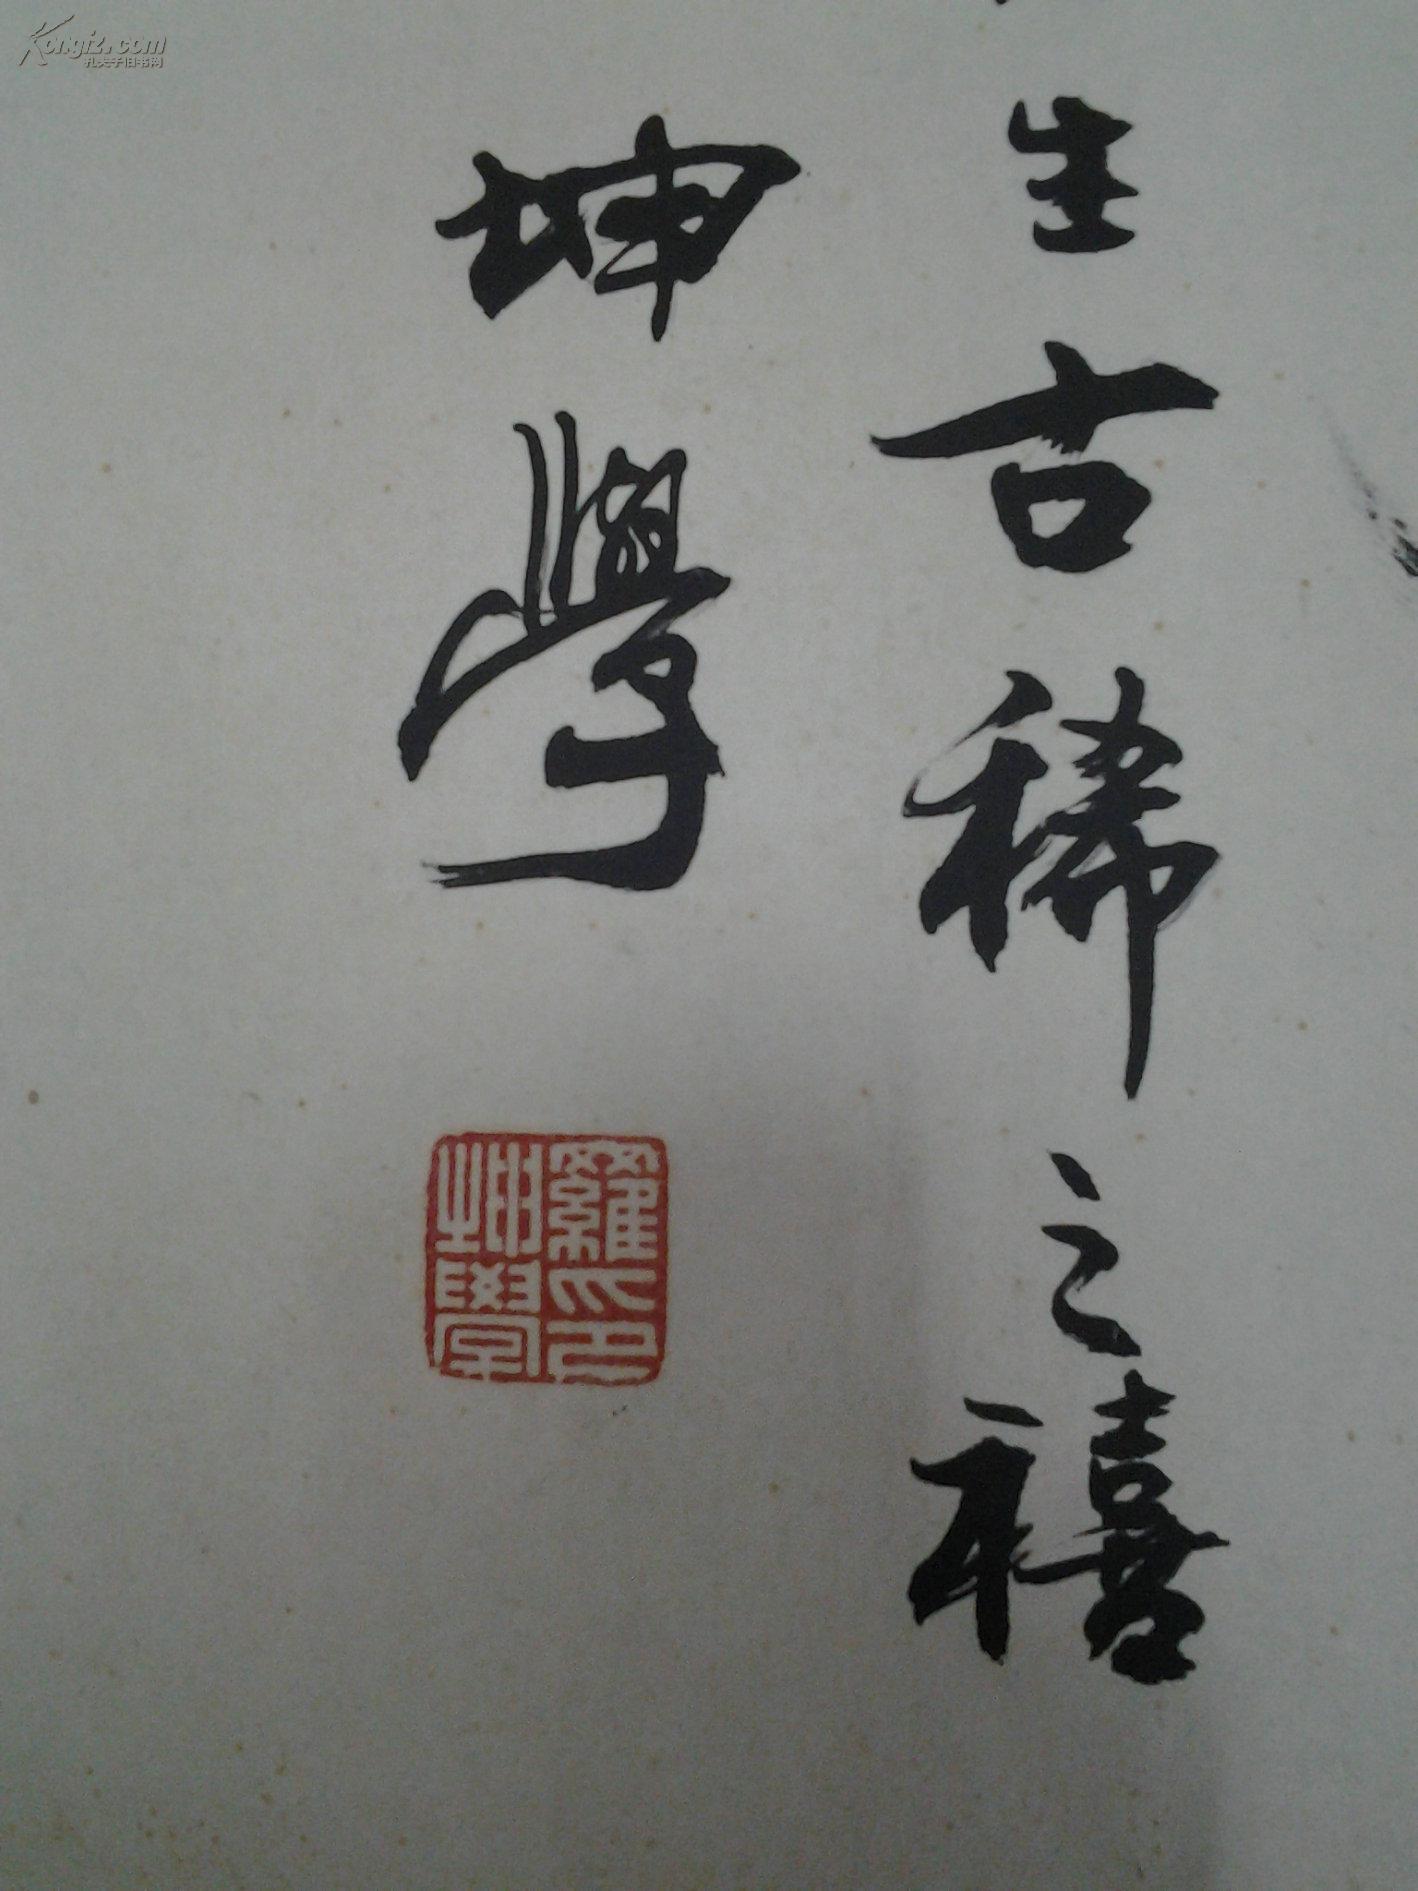 生古稀之禧
坤學
羅坤學印
Kongfz.com
孔夫子旧书网